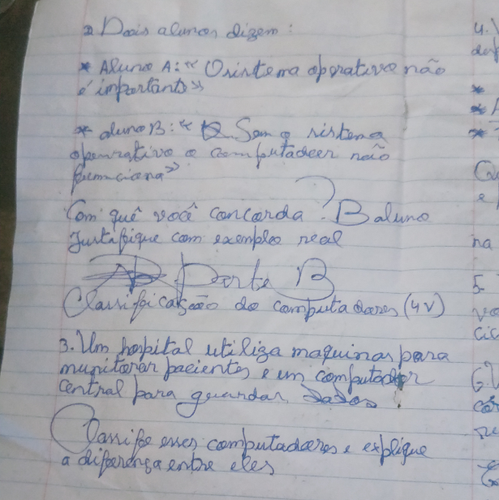 2 Dois alunos dizem:
* Aluno A: "O sistema operativo não
é importante"
* Aluno B: " Sem o sistema
operativo o computadoer não
funciona"
Com quê você concorda? B aluno
Justafique com exemplo real
Parte B
Classificasção do computadores (4V)
3. Um hospital utiliza maquinas para
munitorar pacientes e um computador
central para guardar dados.
Classifie esses computadores e explique
a diferença entre eles
4.
*
*
*
e
na
5.
6.